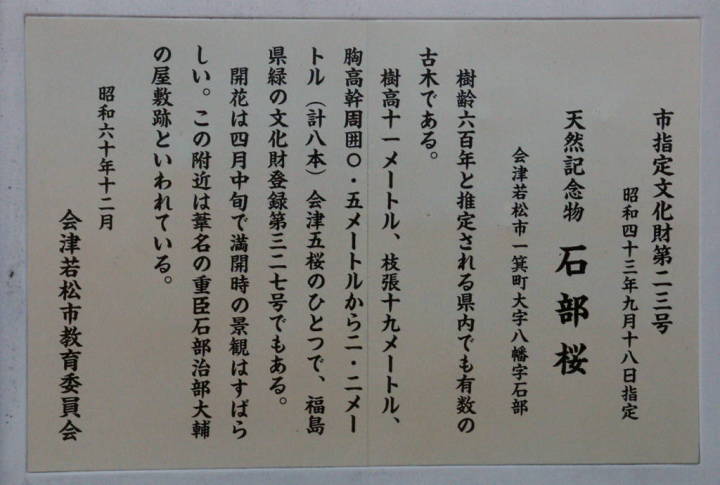 市指定文化財第二三号
昭和四十三年九月十八日指定
天然記念物 石部桜
会津若松市一箕町大字八幡字石部
樹齢六百年と推定される県内でも有数の
古木である。
樹高十一メートル、枝張十九メートル、
胸高幹周囲〇・五メートルから二・二メー
トル（計八本）会津五桜のひとつで、福島
県緑の文化財登録第三二七号でもある。
開花は四月中旬で満開時の景観はすばら
しい。この附近は葦名の重臣石部治部大輔
の屋敷跡といわれている。
昭和六十年十二月
会津若松市教育委員会